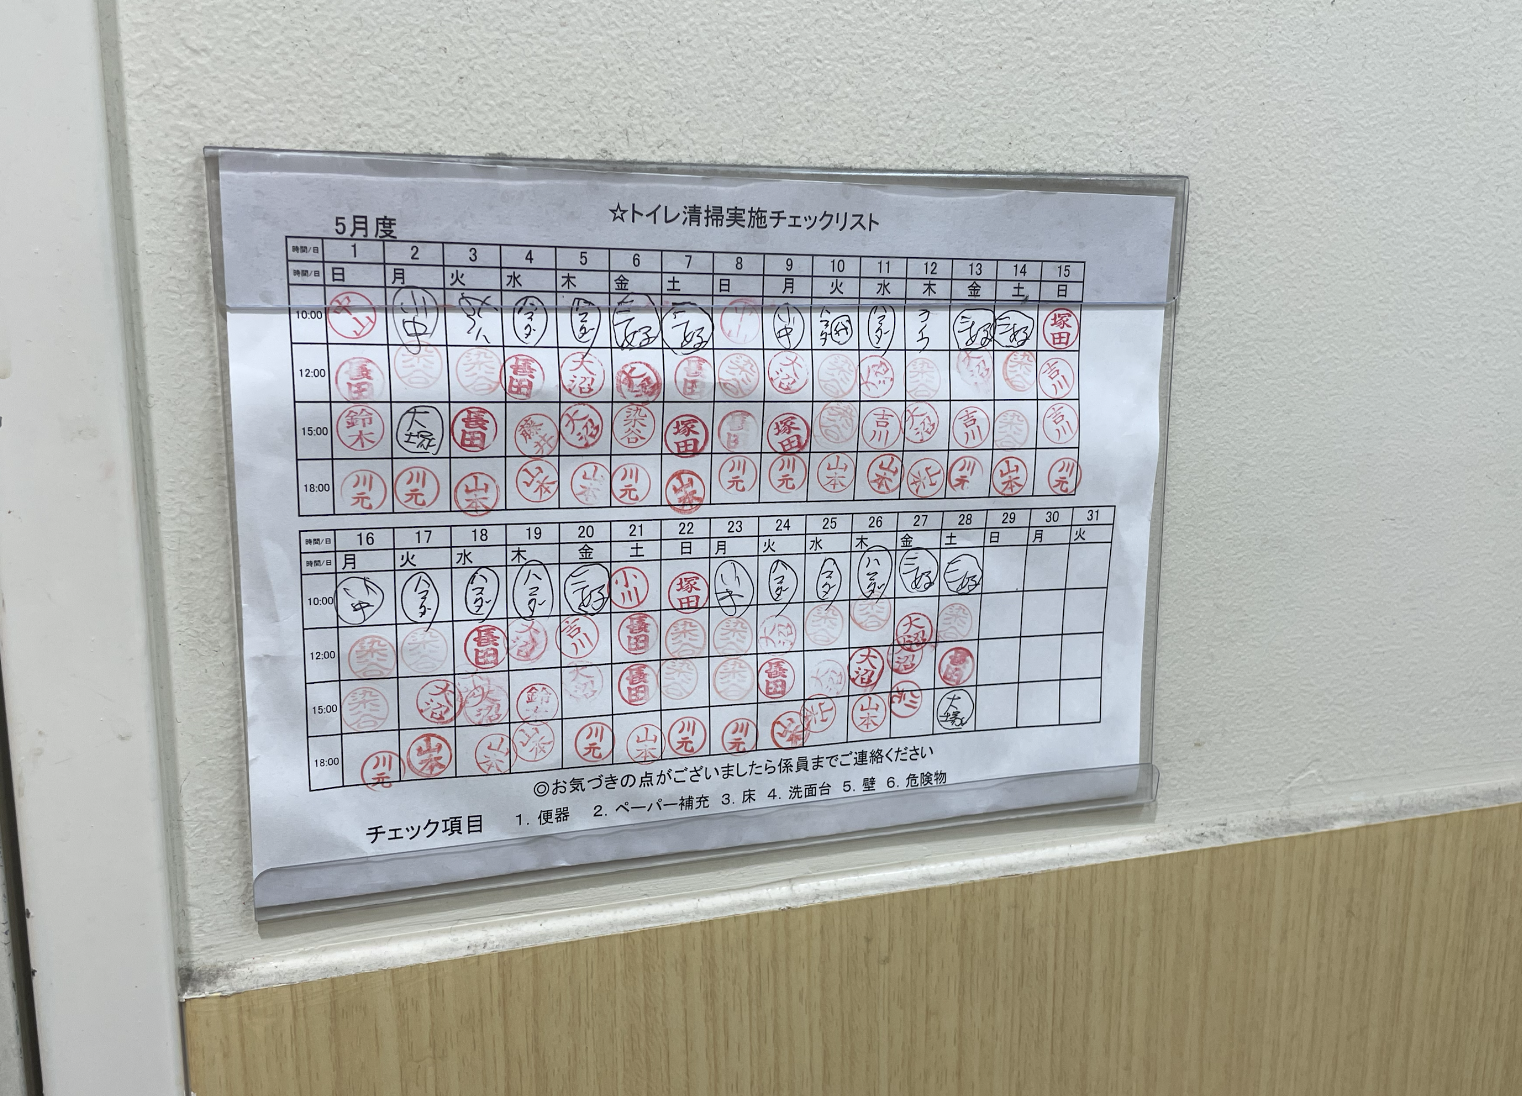 ☆トイレ清掃実施チェックリスト
5月度
時間/日 1 2 3 4 5 6 7 8 9 10 11 12 13 14 15
時間/日 日 月 火 水 木 金 土 日 月 火 水 木 金 土 日
10:00 中山 小中 ハマダ ハマダ 三好 三好 小中 ハマダ 三好 三好 塚田
12:00 長田 染谷 染谷 長田 大沼 大沼 長田 染谷 大沼 染谷 大沼 染谷 大沼 染谷 吉川
15:00 鈴木 大塚 長田 藤井 大沼 染谷 塚田 長田 塚田 染谷 吉川 大沼 吉川 染谷 吉川
18:00 川元 川元 山本 山本 山本 川元 山本 川元 川元 山本 山本 川元 山本 川元
時間/日 16 17 18 19 20 21 22 23 24 25 26 27 28 29 30 31
時間/日 月 火 水 木 金 土 日 月 火 水 木 金 土 日 月 火
10:00 小中 ハマダ ハマダ ハマダ 三好 小川 塚田 小中 ハマダ ハマダ ハマダ 三好 三好
12:00 染谷 染谷 長田 大沼 吉川 長田 染谷 染谷 大沼 染谷 染谷 大沼 染谷
15:00 染谷 大沼 大沼 鈴木 大沼 長田 染谷 染谷 長田 大沼 大沼 大沼 長田
18:00 川元 山本 山本 山本 川元 山本 川元 川元 山本 山本 大塚
◎お気づきの点がございましたら係員までご連絡ください
チェック項目 1. 便器 2. ペーパー補充 3. 床 4. 洗面台 5. 壁 6. 危険物